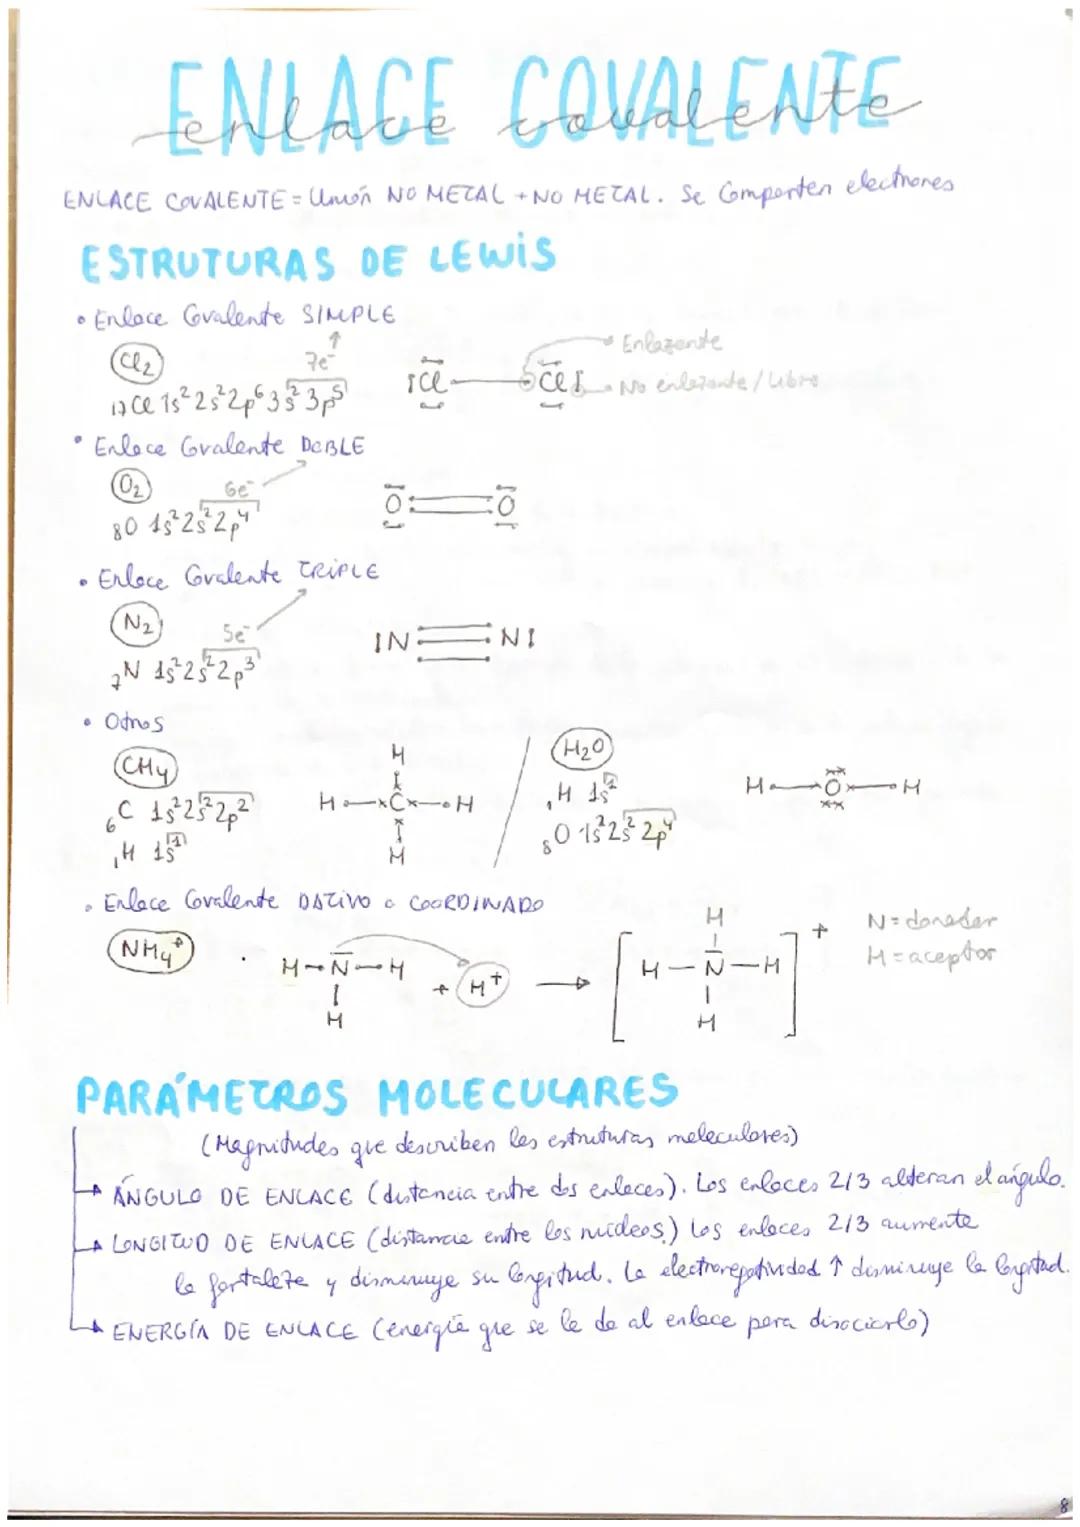 ENLACE COVALENTE
enlace covalente
ENLACE COVALENTE = Unión NO METAL + NO METAL. Se Comparten electrones
ESTRUTURAS DE LEWIS
• Enlace Covalente SIMPLE
Cl₂ 7e⁻
₁₇Cl 1s² 2s² 2p⁶ 3s² 3p⁵
Cl — Cl
Enlazante
No enlazante / Libre
• Enlace Covalente DOBLE
O₂ 6e⁻
₈O 1s² 2s² 2p⁴
O = O
• Enlace Covalente TRIPLE
N₂ 5e⁻
₇N 1s² 2s² 2p³
|N ≡ N|
• Otros
CH₄
₆C 1s² 2s² 2p²
₁H 1s¹
H
H — C — H
H
H₂O
₁H 1s¹
₈O 1s² 2s² 2p⁴
H — O — H
• Enlace Covalente DATIVO o COORDINADO
NH₄⁺
H — N — H
H
+ H⁺ →
H
[H — N — H]⁺
H
N = donador
H = aceptor
PARÁMETROS MOLECULARES
(Magnitudes que describen las estruturas moleculares)
→ ÁNGULO DE ENLACE (distancia entre dos enlaces). Los enlaces 2/3 alteran el ángulo.
→ LONGITUD DE ENLACE (distancia entre los núcleos.) Los enlaces 2/3 aumenta
la fortaleza y disminuye su longitud. La electronegatividad ↑ disminuye la longitud.
→ ENERGÍA DE ENLACE (energía que se le da al enlace para disociarlo)
8